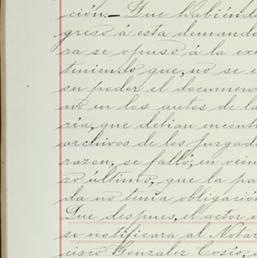 ción.— Que habiénd
gresó á esta demand
ra se opuso á la ex
teniendo que, no se e
su poder el documen
mo en los autos de la
ria, que debian encont
archivos de los juzgad
razon, se falló, en vein
zo último, que la pa
da no tenia obligació
Que despues, el actor
se notificara al Notar
cisco Gonzalez Cosío,